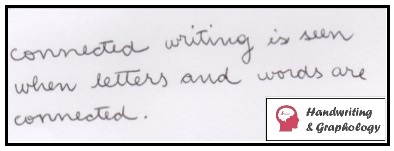 connected writing is seen
when letters and words are
connected.
Handwriting
& Graphology